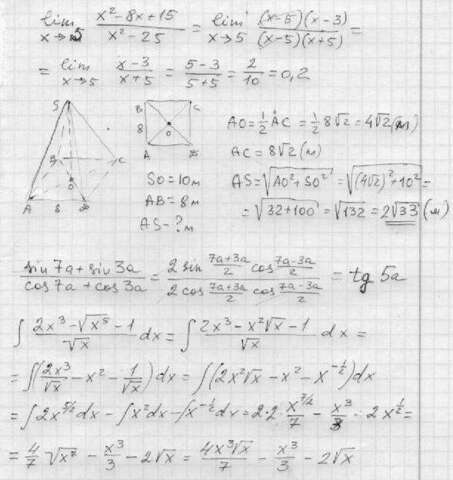 lim x→5 (x²-8x+15)/(x²-25) = lim x→5 ((x-5)(x-3))/((x-5)(x+5)) =
= lim x→5 (x-3)/(x+5) = (5-3)/(5+5) = 2/10 = 0,2
S
B
C
O
A
8
B
C
8
O
A
SO=10м
AB=8м
AS-?м
AO=½AC=½8√2=4√2(м)
AC=8√2(м)
AS=√(AO²+SO²)=√((4√2)²+10²)=
=√(32+100)=√132=2√33(м)
(sin7a+sin3a)/(cos7a+cos3a) = (2sin (7a+3a)/2 cos (7a-3a)/2)/(2cos (7a+3a)/2 cos (7a-3a)/2) = tg 5a
∫ (2x³-√x⁵-1)/√x dx = ∫ (2x³-x²√x-1)/√x dx =
= ∫(2x³/√x - x² - 1/√x) dx = ∫(2x²√x - x² - x^(-½))dx
= ∫2x^(5/2)dx - ∫x²dx - ∫x^(-½)dx = 2·2·x^(7/2)/7 - x³/3 - 2x^(½) =
= 4/7 √x⁷ - x³/3 - 2√x = 4x³√x/7 - x³/3 - 2√x